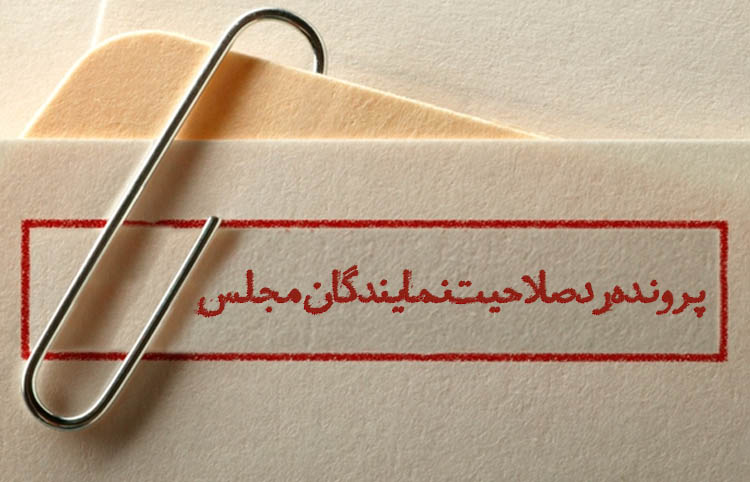 پرونده رد صلاحیت نمایندگان مجلس